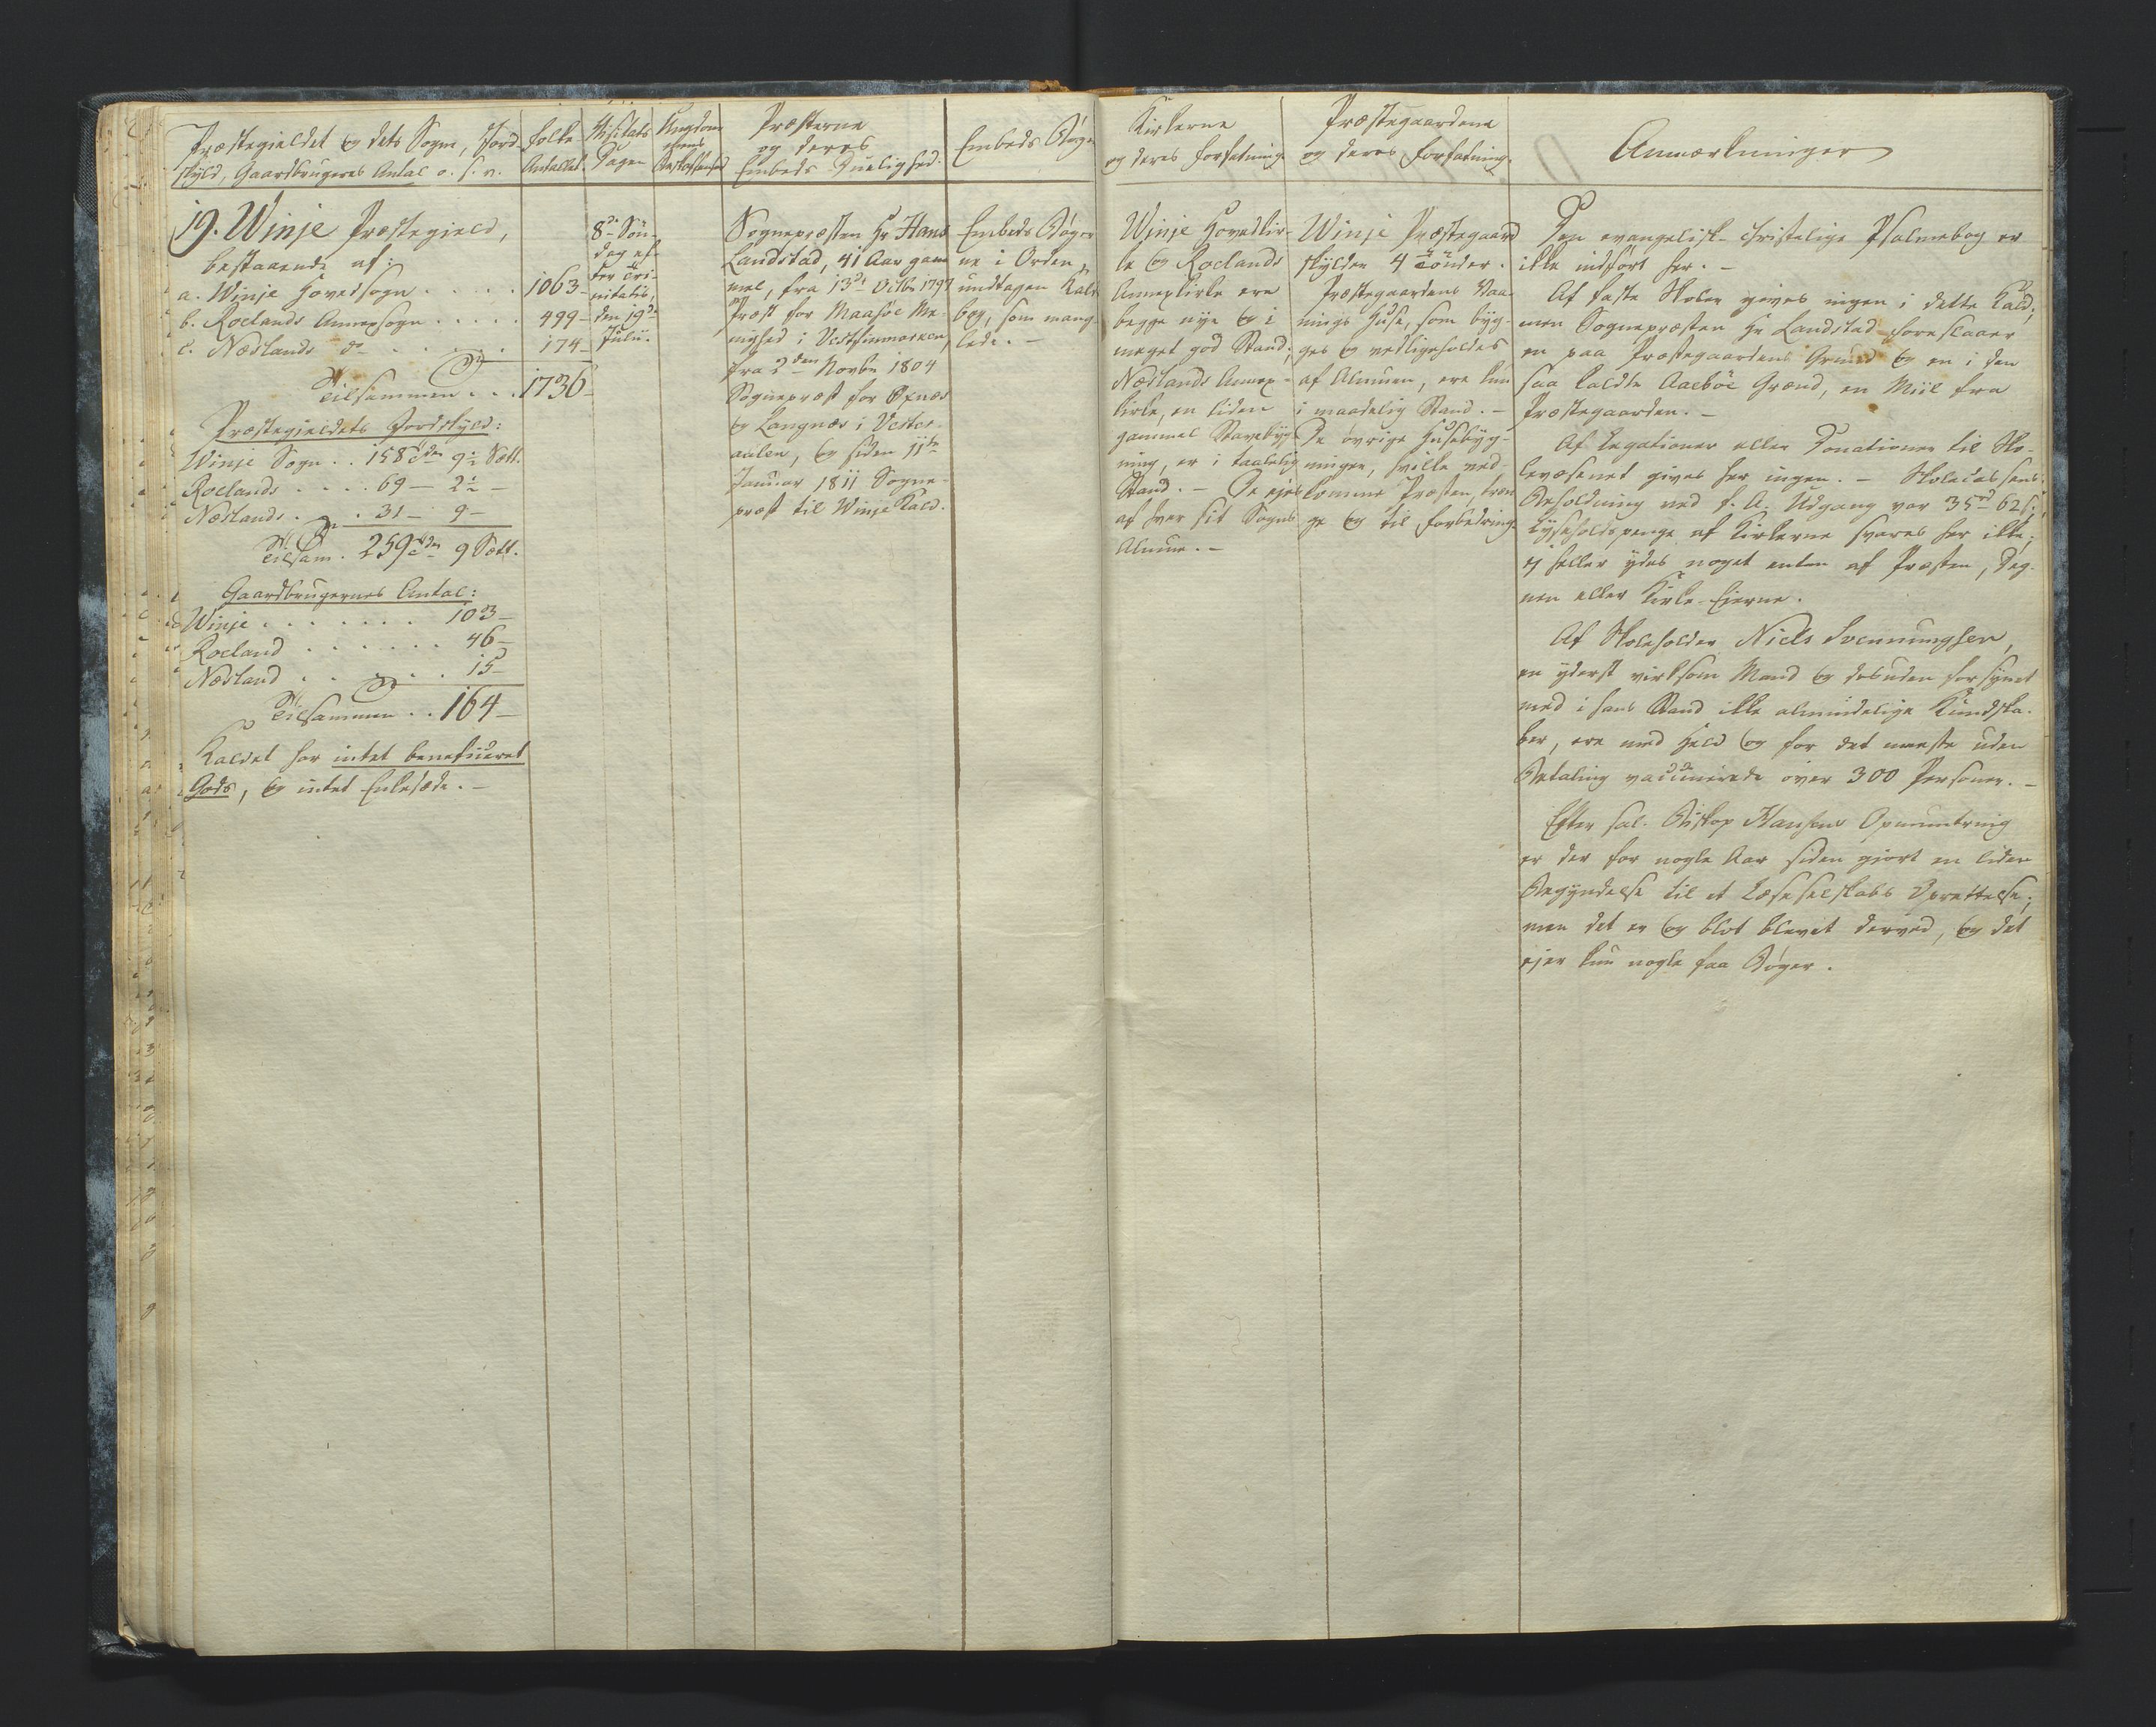 Præstegieldet og dets Sogne, Jord-
skyld, Gaardbrugeres Antal o. s. v.
Folke
Antallet.
Visitats
Dagen
Ungdom
mens
Præsterne
og deres
Embeds Duelighed.
Embeds Bøger
19. Winje Præstegield,
bestaaende af:
a. Winje Hovedsogn . . . . 1063 -
b. Roelands Annexsogn . . . . . 499 -
c. Næslands do . . . . . . 174 -
Tilsammen . . . 1736 -
Præstegieldets Jordskyld:
Winje Sogn . . 158 9½ Sett.
Roelands . . . . 69 - 2½ -
Næslands . . . 31 - 9 -
Tilsam. 259 9 Sett.
Gaardbrugernes Antal:
Winje . . . . . . . 103 -
Roeland . . . . . . 46 -
Næsland . . . . . . 15 -
Tilsammen . . 164 -
Kaldet har intet beneficeret
Gods, og intet Enkesæde. -
8de Søn-
dag ef-
ter Tri-
nitatis,
den 19de
Julii.
Sognepræsten Hr Hans
Landstad, 41 Aar gam-
mel, fra 13de Octbr 1797
Præst for Maasöe Me-
nighed i Vestfinmarken,
fra 2den Novbr 1804
Sognepræst for Öxnæs
og Langnæs i Vester-
aalen, og siden 11te
Januar 1811 Sogne-
præst til Winje Kald.
Embeds Bøger-
ne i Orden,
undtagen Kalds-
bog, som mang-
lede. -
Kirkerne
og deres Forfatning.
Præstegaardene
og deres Forfatning.
Anmærkninger
Winje Hovedkir-
ke og Roelands
Annexkirke ere
begge nye og i
meget god Stand;
Næslands Annex-
kirke, en liden
gammel Stavebyg-
ning, er i taalelig
Stand. - De ejes
af hver sit Sogns
Almue. -
Winje Præstegaard
skylder 4 Tönder.
Præstegaardens Vaa-
nings Huse, som byg-
ges og vedligeholdes
af Almuen, ere kun
i maadelig Stand. -
De øvrige Husebyg-
ninger, hvilke ved-
komme Præsten, træn-
ge og til Forbedring.
Den evangelisk-christelige Psalmebog er
ikke indført her. -
Af faste Skoler gives ingen i dette Kald,
men Sognepræsten Hr Landstad foreslaaer
en paa Præstegaardens Grund og en i den
saa kaldte Aaeböe Grænd, en Miil fra
Præstegaarden. -
Af Legationer eller Donationer til Sko-
levæsenet gives her ingen. - Skolecassens
Beholdning ved f. A. Udgang var 35rd 62s;
Lysseholdspenge af Kirkerne svares her ikke;
ej heller ydes noget enten af Præsten, Deg-
nen eller Kirke-Eierne.
Af Skoleholder Niels Svennungsen,
en yderst virksom Mand og desuden forsynet
med i hans Stand ikke almindelige Kundska-
ber, ere med Held og for det meeste uden
Betaling vaccinerede över 300 Personer. -
Efter sal. Biskop Hansens Opmuntring
er der for nogle Aar siden gjort en liden
Begyndelse til et Læseselskabs Oprettelse;
men det er og blot blevet derved, og det
ejer kun nogle faa Bøger.